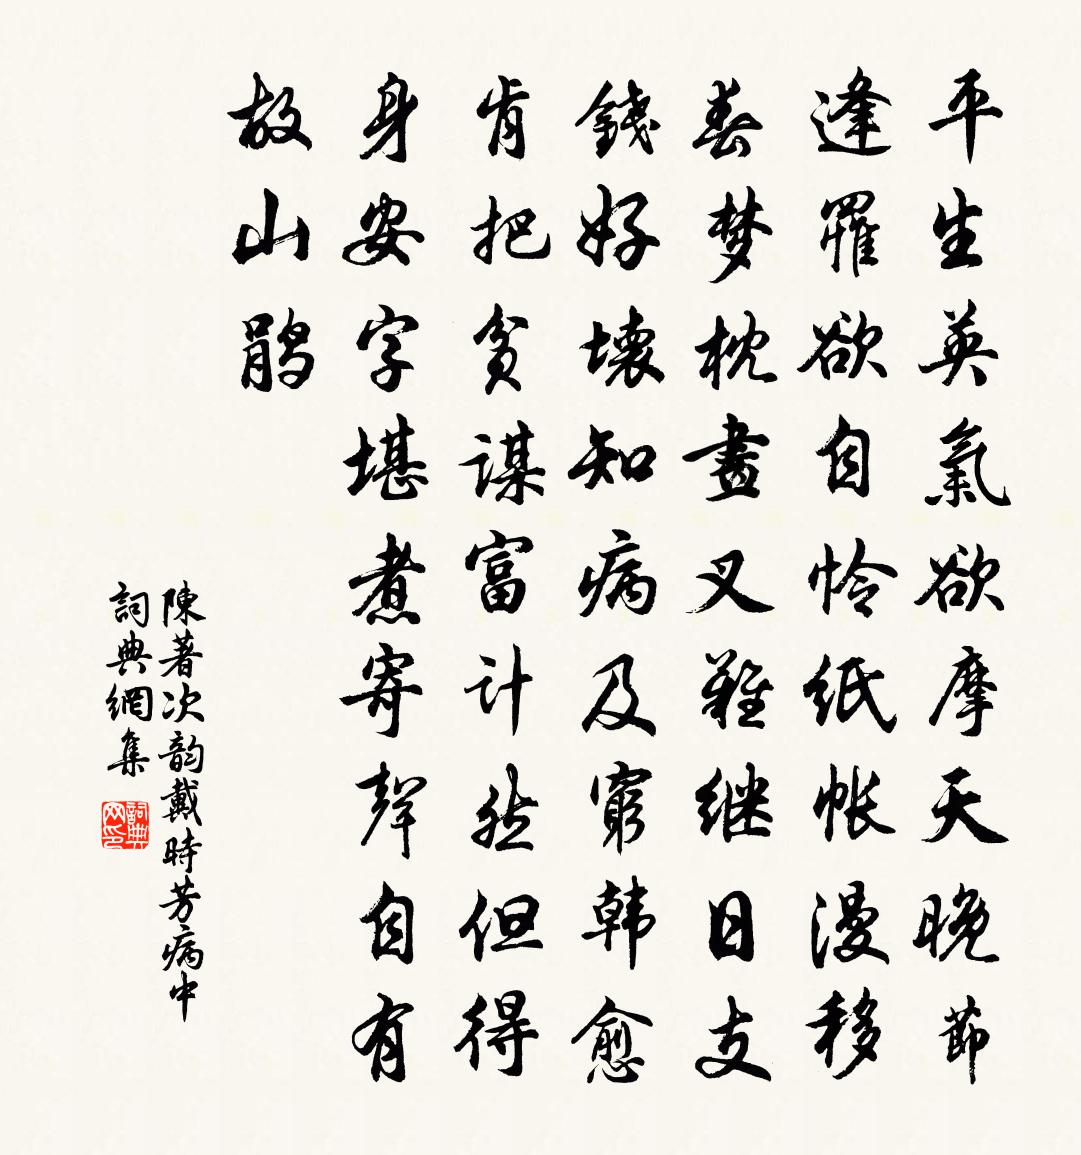 平生英氣欲摩天晚節
逢罹欲自怜紙帐漫移
春梦枕畫叉難继日支
錢好壞知病及窮韩愈
肯把貧谋富计然但得
身安字堪煮寄聲自有
故山鹃
陳著次韵戴時芳病中
詞典網集
詞典网印